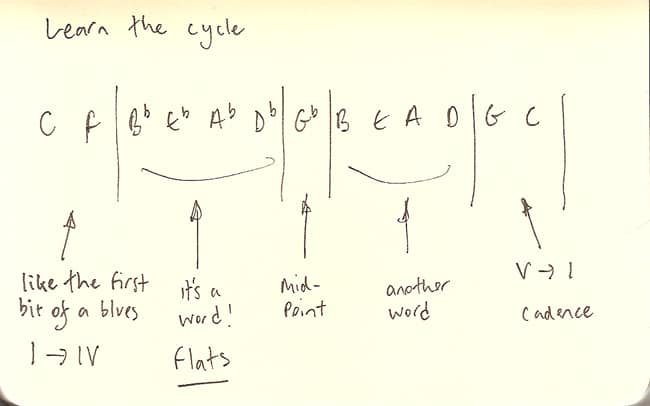 Learn the cycle
C F | Bb Eb Ab Db | Gb | B E A D | G C |
like the first
bit of a blues
I → IV
it's a
word!
flats
Mid-
Point
another
word
V → I
Cadence